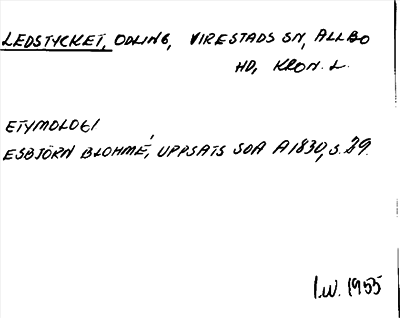 LEDSTYCKET, ODLING, VIRESTADS SN, ALLBO
HD, KRON. L.
ETYMOLOGI
ESBJÖRN BLOHMÉ, UPPSATS SOA A1830, S. 29.
I.W. 1955